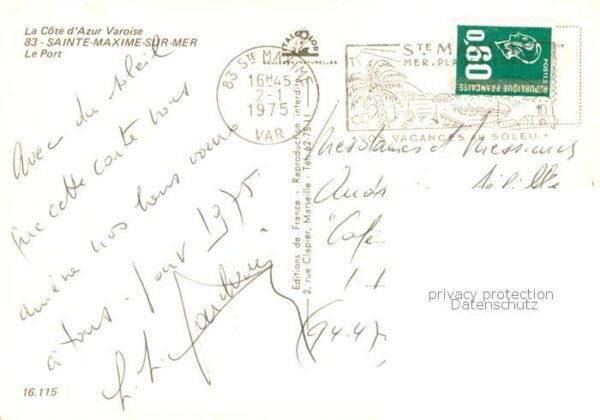 La Côte d'Azur Varoise
83 - SAINTE-MAXIME-SUR-MER
Le Port
Avec du soleil
que cette carte vous
amène nos bons voeux
à tous. pour 1975
16.115
ITALCOLOR
COULEURS NATURELLES
Editions de France - Reproduction interdite
2, rue Clapier, Marseille - Tél. 62-75-11
83 STE MAXIME
16H45
2-1
1975
VAR
STE M
MER. PLA
VOS VACANCES AU SOLEIL
0,60
POSTES
REPUBLIQUE FRANÇAISE
Mesdames et Messieurs
"Café
(94.47
privacy protection
Datenschutz